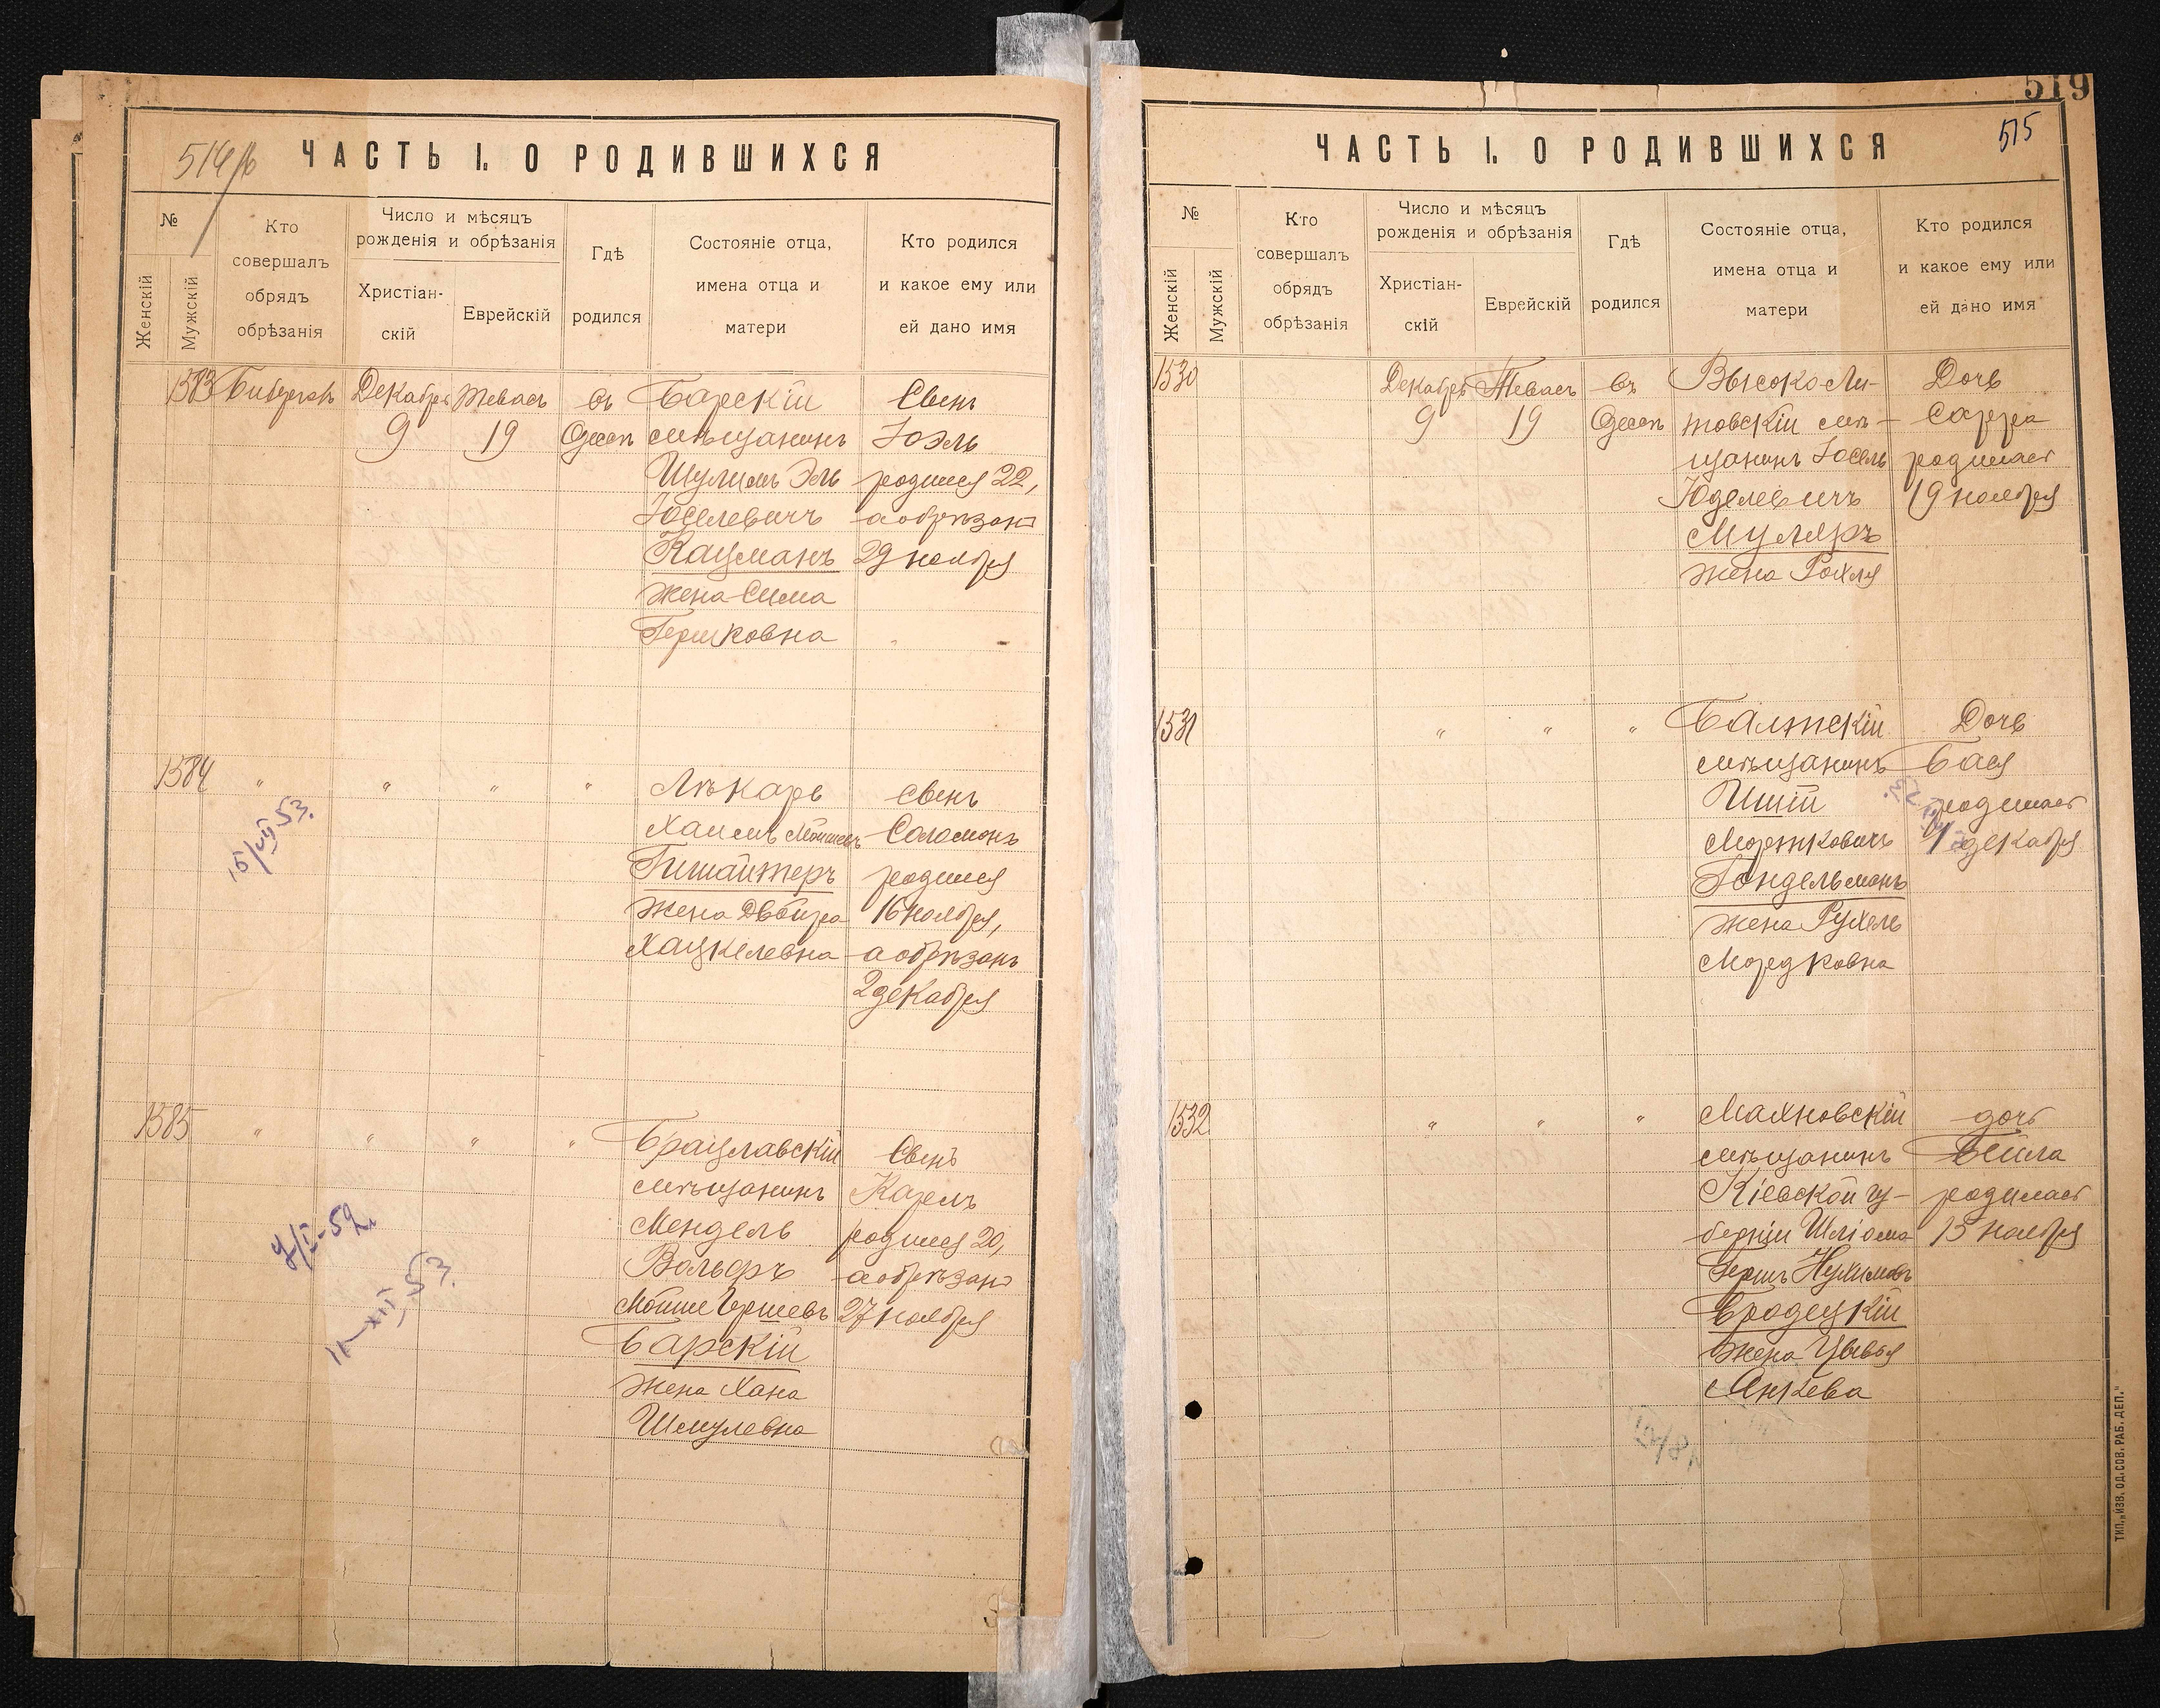 ЧАСТЬ I. О РОДИВШИХСЯ
№
Женскій
Мужскій
Кто
совершалъ
обрядъ
обрѣзанія
Число и мѣсяцъ
рожденія и обрѣзанія
Христіан-
скій
Еврейскій
Гдѣ
родился
Состояніе отца,
имена отца и
матери
Кто родился
и какое ему или
ей дано имя
1583
Декабря
9
Тевасъ
19
въ
Одессѣ
Барскій
мѣщанинъ
Шулимъ Эль
Іоселевичъ
Кацманъ
жена Сима
Гершковна
Сынъ
Іоэль
родился 22,
а обрѣзанъ
29 ноября
1584
"
"
"
"
Лѣкарь
Хаимъ
жена Двойра
Хацкелевна
сынъ
Соломонъ
родился
16 ноября,
а обрѣзанъ
2 декабря
15/VII 53.
1585
"
"
"
"
Брацлавскій
мѣщанинъ
Мендель
Вольфъ
Мойше Гершевъ
Барскій
жена Хана
Шмулевна
Сынъ
Карлъ
родился 20,
а обрѣзанъ
27 ноября
11-XII 53.
519
515
ЧАСТЬ I. О РОДИВШИХСЯ
№
Женскій
Мужскій
Кто
совершалъ
обрядъ
обрѣзанія
Число и мѣсяцъ
рожденія и обрѣзанія
Христіан-
скій
Еврейскій
Гдѣ
родился
Состояніе отца,
имена отца и
матери
Кто родился
и какое ему или
ей дано имя
1530
Декабря
9
Тевасъ
19
въ
Одессѣ
Высоко-Ли-
товскій мѣ-
щанинъ Іосель
Юделевичъ
Муляръ
жена Рахля
Дочь
Сарра
родилась
19 ноября
1531
"
"
"
Балтскій
мѣщанинъ
Мортковичъ
Гондельманъ
жена Рухель
Мордковна
Дочь
Бася
родилась
декабря
1532
"
"
"
Махновскій
мѣщанинъ
Кіевской гу-
берніи Шліома
Гершъ Нухимовъ
Бродецкій
жена Цывья
Янкева
дочь
Бейла
родилась
15 ноября
ТИП. „ИЗВ. ОД. СОВ. РАБ. ДЕП."